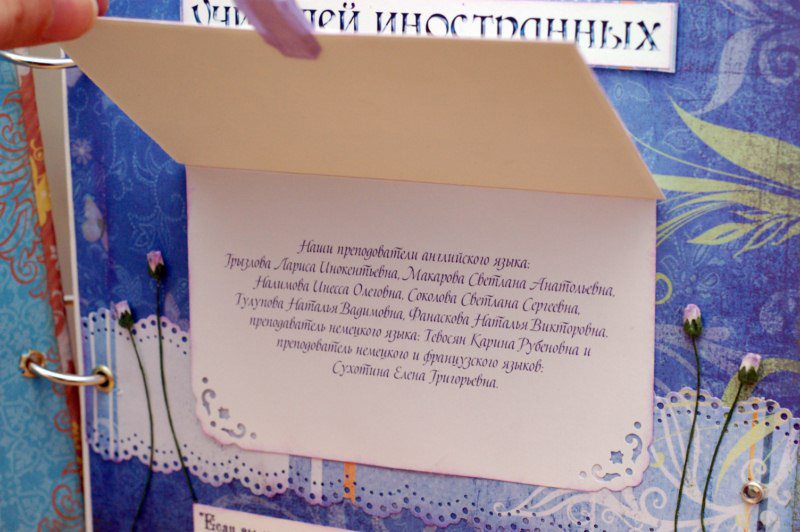 иностранных
Наши преподователи английского языка:
Грызлова Лариса Инокентьевна, Макарова Светлана Анатольевна,
Налимова Инесса Олеговна, Соколова Светлана Сергеевна,
Тулупова Наталья Вадимовна, Фанаскова Наталья Викторовна,
преподаватель немецкого языка: Тевосян Карина Рубеновна и
преподователь немецкого и французского языков:
Сухотина Елена Григорьевна.
"Если